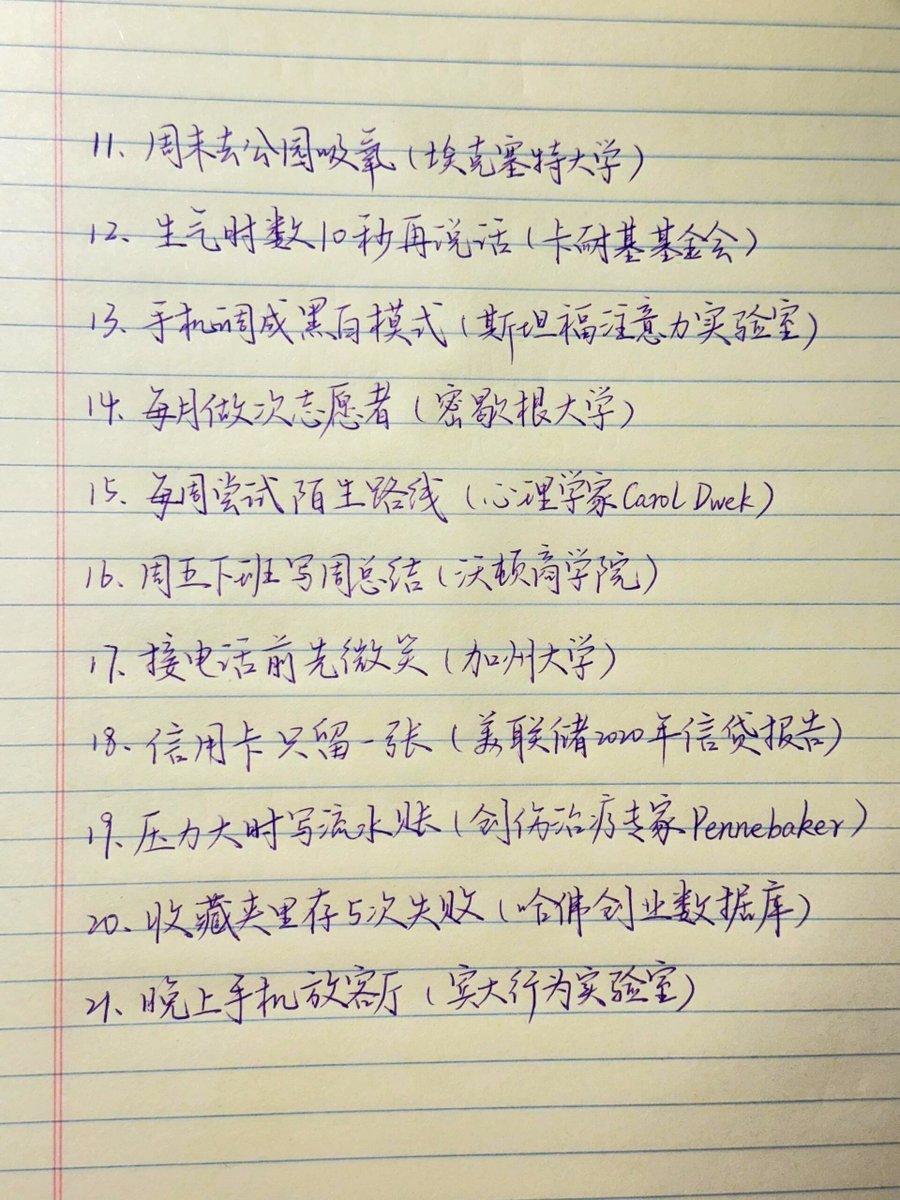 11、周末去公园吸氧(埃克塞特大学)
12、生气时数10秒再说话(卡耐基基金会)
13、手机调成黑白模式(斯坦福注意力实验室)
14、每月做次志愿者(密歇根大学)
15、每周尝试陌生路线(心理学家Carol Dwek)
16、周五下班写周总结(沃顿商学院)
17、接电话前先微笑(加州大学)
18、信用卡只留一张(美联储2020年信贷报告)
19、压力大时写流水账(创伤治疗专家Pennebaker)
20、收藏夹里存5次失败(哈佛创业数据库)
21、晚上手机放客厅(宾大行为实验室)